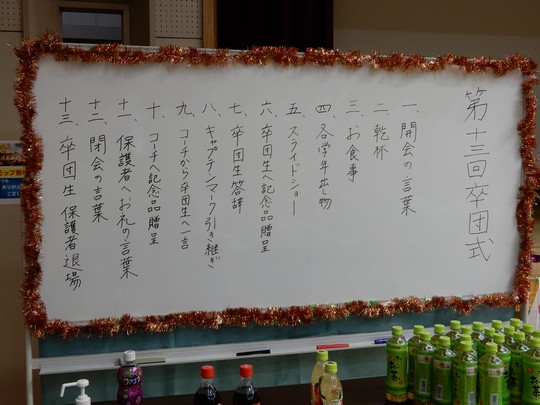 第十三回卒団式
一、開会の言葉
二、乾杯
三、お食事
四、各学年出し物
五、スライドショー
六、卒団生へ記念品贈呈
七、卒団生答辞
八、キャプテンマーク引き継ぎ
九、コーチから卒団生へ一言
十、コーチへ記念品贈呈
十一、保護者へお礼の言葉
十二、閉会の言葉
十三、卒団生・保護者退場